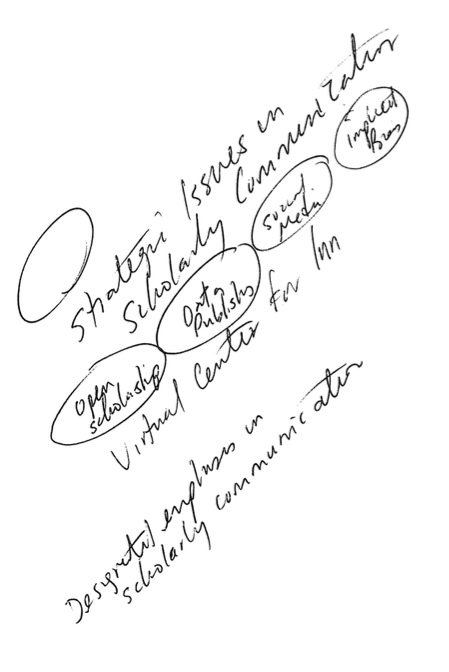 Strategic Issues in
Scholarly Communication
Open
scholarship
Data
Publishing
Social
Media
Implicit
Bias
Virtual Center for Inn
Designated emphases in
scholarly communication